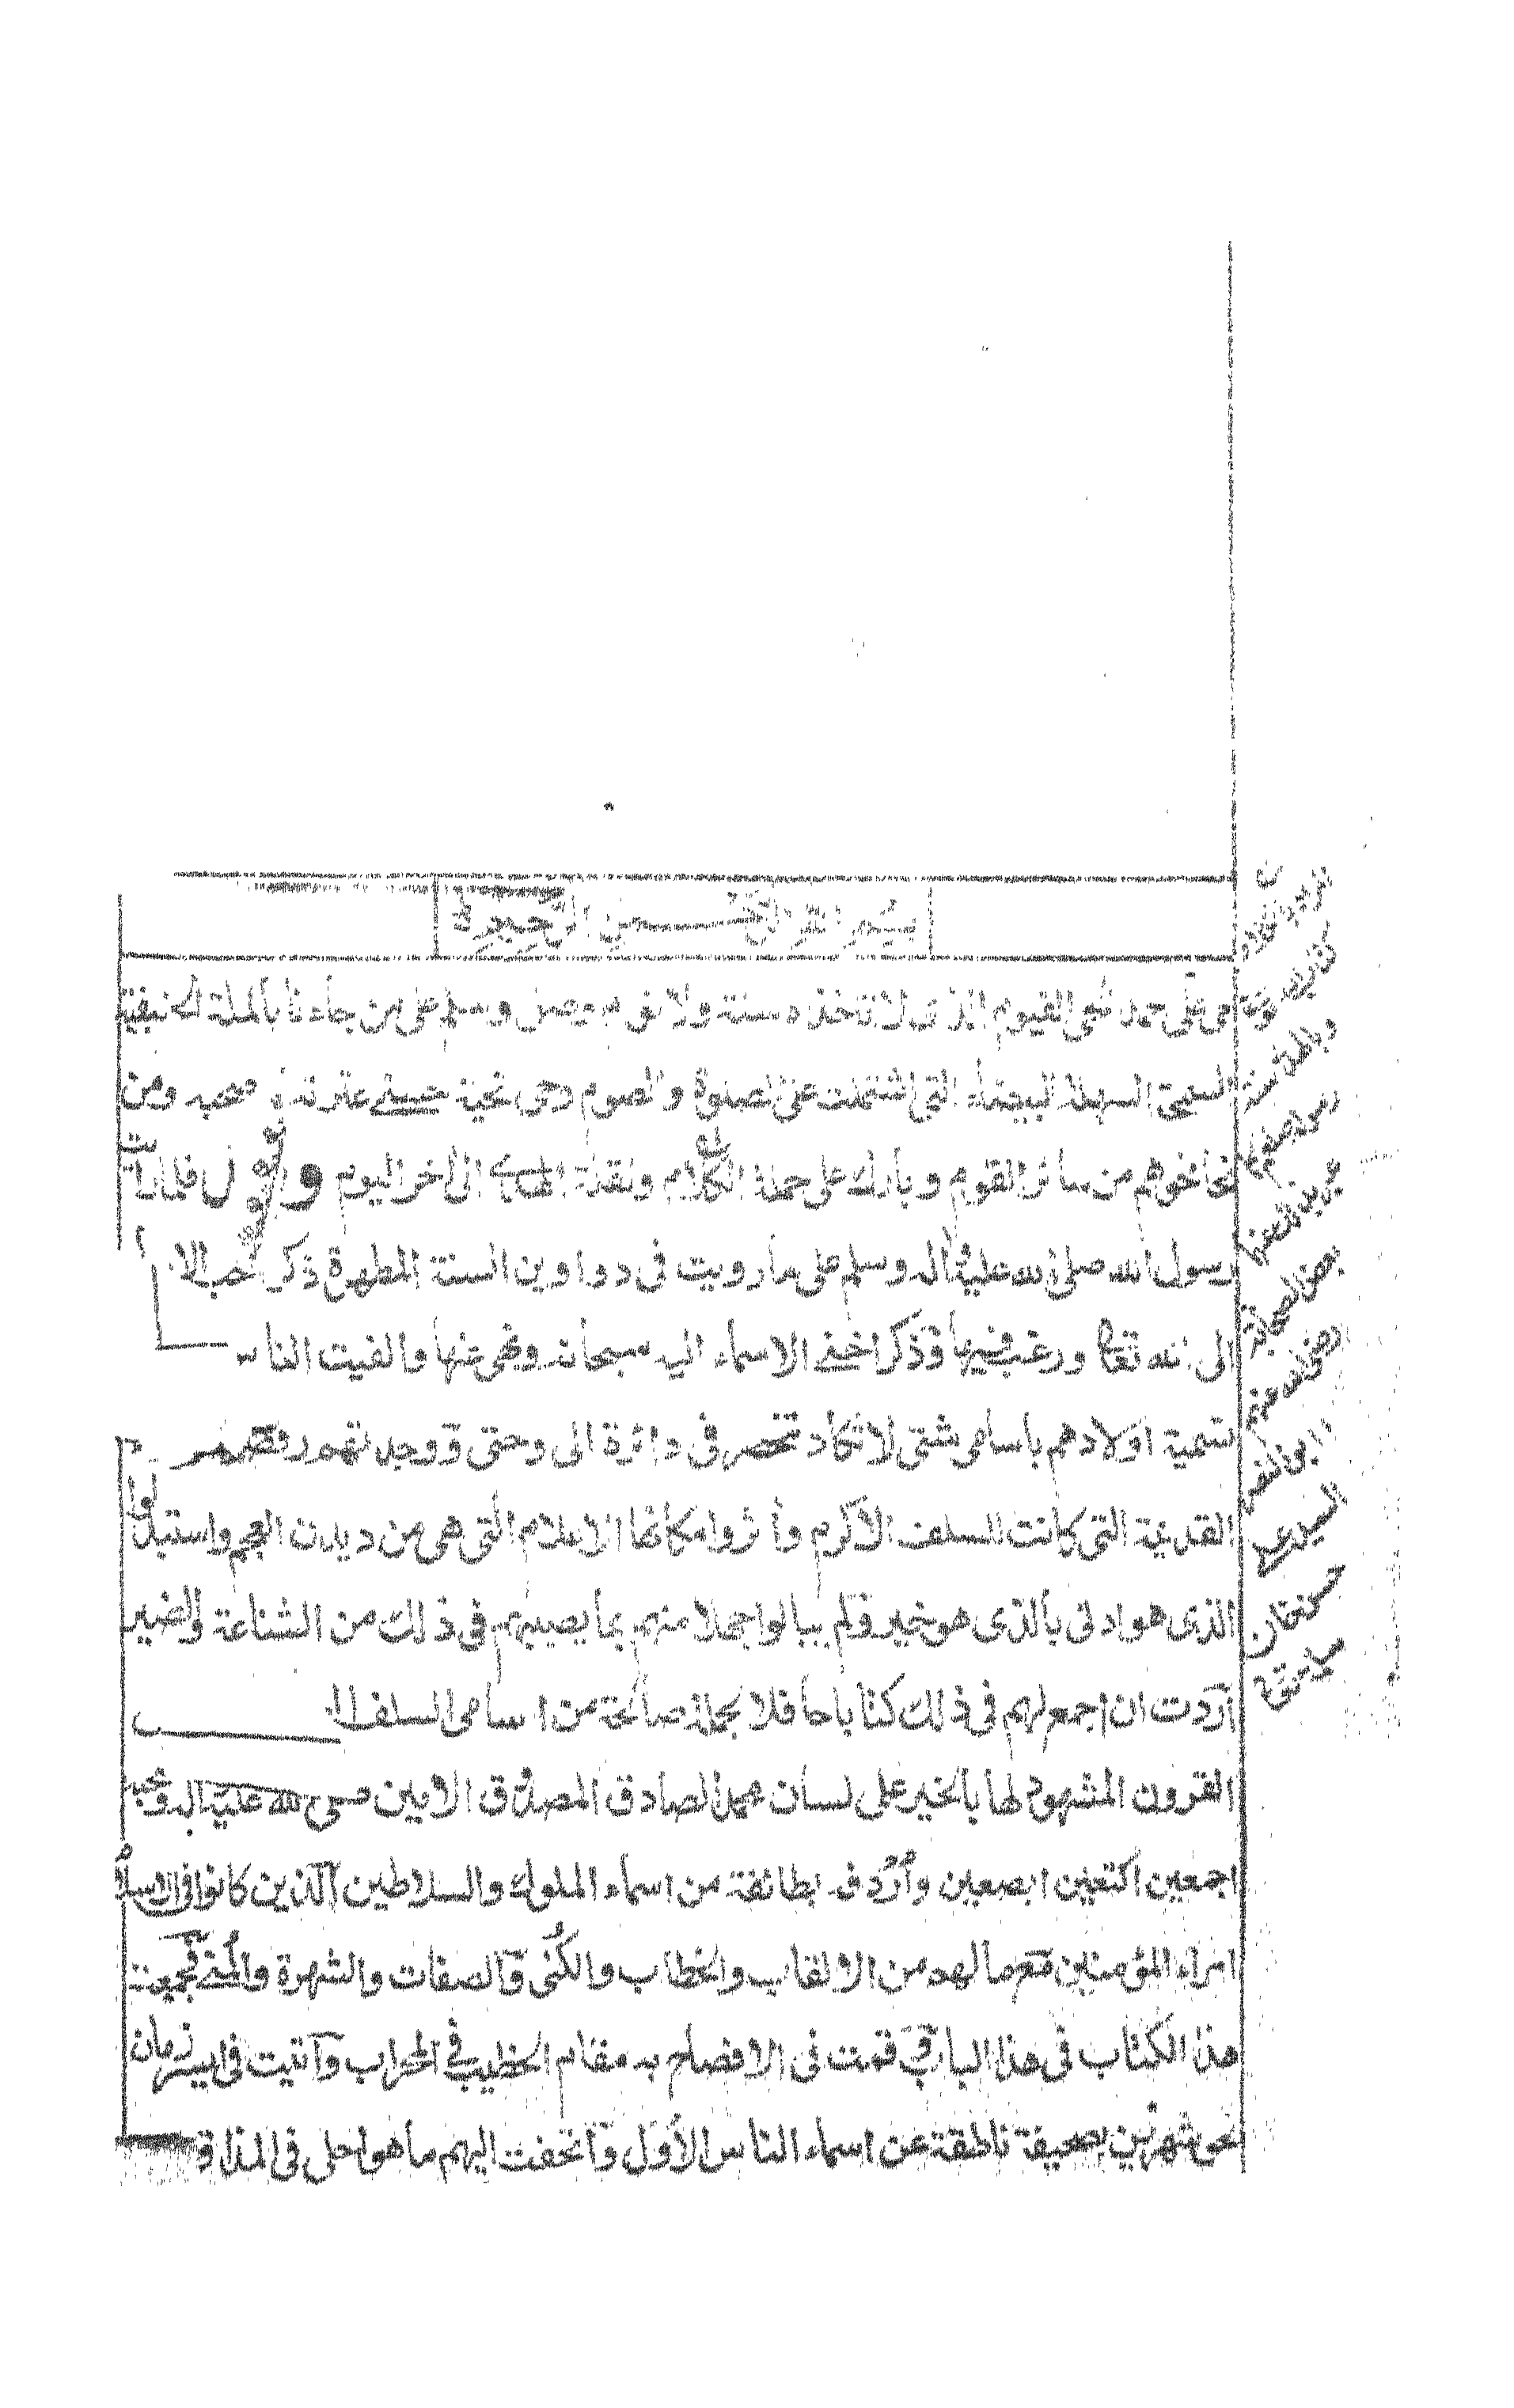 بسم الله الرحمن الرحيم
على حمد الحي القيوم الذي لا تاخذه سنة ولا نوم ويصلى ويسلم على من جاءنا بالملة الحنيفية
السمحة السهلة البيضاء التي اشتملت على الصلوة والصوم وعلى صحبه ومن
نحا نحوهم من سائر القوم وبارك على حملة الكلام ونقلة الى اخر اليوم واقول فلما رايت
رسول الله صلى الله عليه واله وسلم على ما رويت في دواوين السنة المطهرة ذكر احب الا
الى الله تعالى ورغب فيها وذكر اخنع الاسماء اليه سبحانه ونهى عنها والفيت الناس
تسمية اولادهم باسامى شتى لا تكاد تنحصر في دائرة الى وحتى ووجدتهم رفضهم
القديمة التي كانت للسلف الاكرم وأثروا مكانها الاعلام التي هي من ديدن العجم واستبدلوا
الذى هو ادنى بالذى هو خير ولم يبالوا جهلا منهم بما يصيبهم في ذلك من الشناعة والضير
اردت ان اجمع لهم في ذلك كتابا حافلا بجملة صالحة من اسامى السلف ال
القرون المشهود لها بالخير على لسان محمد الصادق المصدوق الامين صلى الله عليه واله وصحبه
اجمعين اكتعين ابصعين وأردفه بطائفة من اسماء الملوك والسلاطين الذين كانوا في الاسلام
امراء المؤمنين مع ما لهم من الالقاب والخطاب والكنى والصفات والشهرة والمنى فجمعت
هذا الكتاب في هذا الباب وقمت في الافصاح به مقام الخطيب في المحراب وآتيت في ايسر زمان
نحو شهرين بصحيفة ناطقة عن اسماء الناس الأول واتحفت اليهم ما هو احلى في المذاق
وبالمقامنة
رسول الله صلى الله
بعض الصحابة
رضى الله عنهم
ابو النصر
السيد على
حسن خان
سلامتى